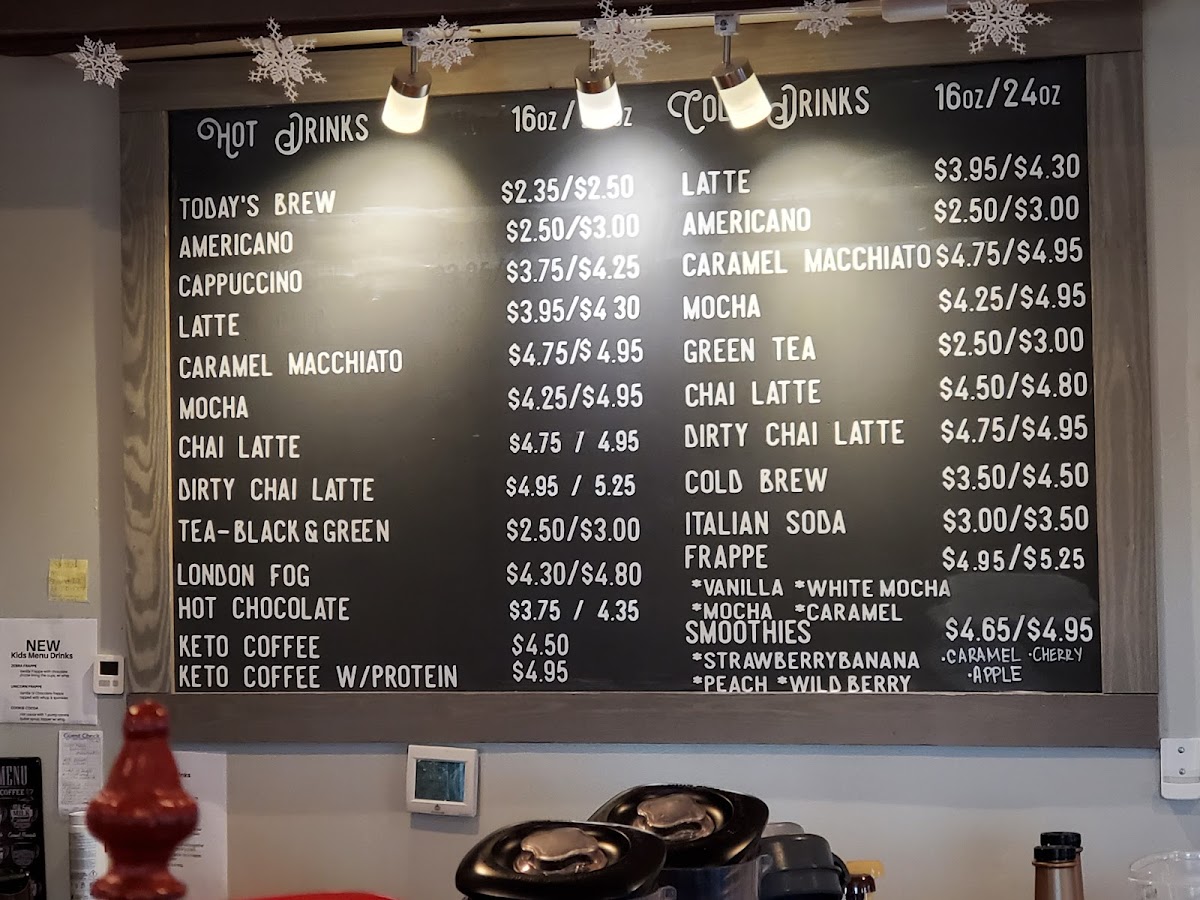 HOT DRINKS 16OZ/ OZ
TODAY'S BREW $2.35/$2.50
AMERICANO $2.50/$3.00
CAPPUCCINO $3.75/$4.25
LATTE $3.95/$4 30
CARAMEL MACCHIATO $4.75/$4.95
MOCHA $4.25/$4.95
CHAI LATTE $4.75 / 4.95
DIRTY CHAI LATTE $4.95 / 5.25
TEA-BLACK & GREEN $2.50/$3.00
LONDON FOG $4.30/$4.80
HOT CHOCOLATE $3.75 / 4.35
KETO COFFEE $4.50
KETO COFFEE W/PROTEIN $4.95
COLD DRINKS 16OZ/24OZ
LATTE $3.95/$4.30
AMERICANO $2.50/$3.00
CARAMEL MACCHIATO $4.75/$4.95
MOCHA $4.25/$4.95
GREEN TEA $2.50/$3.00
CHAI LATTE $4.50/$4.80
DIRTY CHAI LATTE $4.75/$4.95
COLD BREW $3.50/$4.50
ITALIAN SODA $3.00/$3.50
FRAPPE $4.95/$5.25
*VANILLA *WHITE MOCHA
*MOCHA *CARAMEL
SMOOTHIES $4.65/$4.95
*STRAWBERRYBANANA
*PEACH *WILD BERRY
·CARAMEL ·CHERRY
·APPLE
NEW
Kids Menu Drinks
Guest Check
MENU
COFFEE